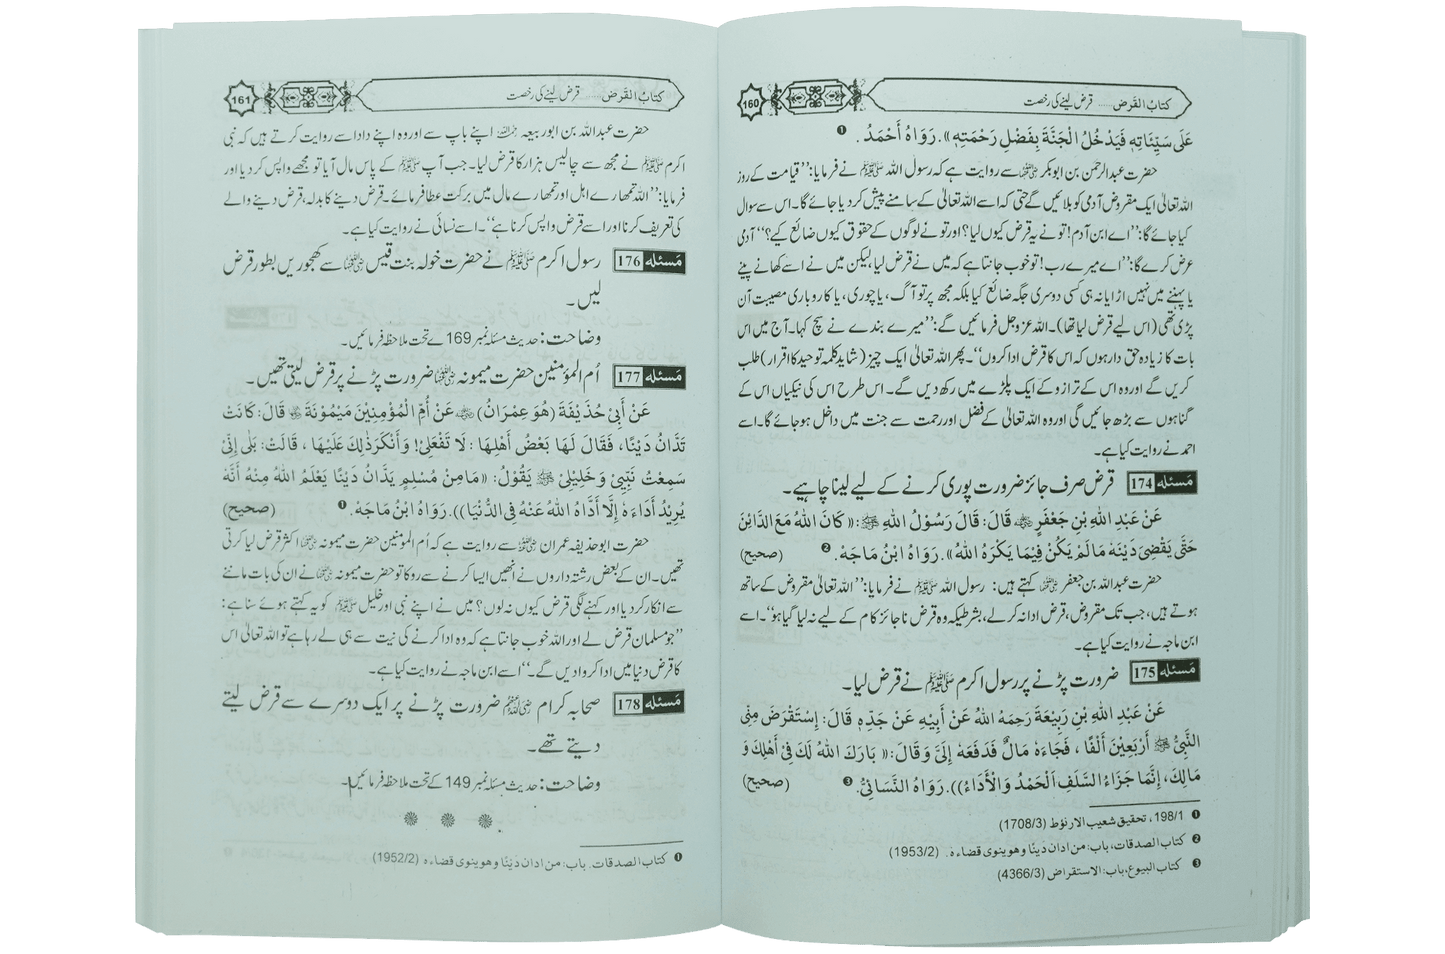 160 كتابُ القَرض ..... قرض لینے کی رخصت
عَلَى سَيِّئَاتِهِ فَيَدْخُلُ الْجَنَّةَ بِفَضْلِ رَحْمَتِهِ)). رَوَاهُ أَحْمَدُ . ❶
حضرت عبدالرحمٰن بن ابوبکر رضی اللہ عنہ سے روایت ہے کہ رسول اللہ ﷺ نے فرمایا: ’’قیامت کے روز
اللہ تعالیٰ ایک مقروض آدمی کو بلائیں گے حتی کہ اسے اللہ تعالیٰ کے سامنے پیش کر دیا جائے گا۔ اس سے سوال
کیا جائے گا: ’’اے ابن آدم! تو نے یہ قرض کیوں لیا؟ اور تو نے لوگوں کے حقوق کیوں ضائع کیے؟‘‘ آدمی
عرض کرے گا: ’’اے میرے رب! تو خوب جانتا ہے کہ میں نے قرض لیا لیکن میں نے اسے کھانے پینے
یا پہننے میں نہیں اڑایا نہ ہی کسی دوسری جگہ ضائع کیا بلکہ مجھ پر تو آگ، یا چوری، یا کاروباری مصیبت آن
پڑی تھی (اس لیے قرض لیا تھا)۔ اللہ عزوجل فرمائیں گے: ’’میرے بندے نے سچ کہا۔ آج میں اس
بات کا زیادہ حق دار ہوں کہ اس کا قرض ادا کروں‘‘۔ پھر اللہ تعالیٰ ایک چیز (شاید کلمہ توحید کا اقرار) طلب
کریں گے اور وہ اس کے ترازو کے ایک پلڑے میں رکھ دیں گے۔ اس طرح اس کی نیکیاں اس کے
گناہوں سے بڑھ جائیں گی اور وہ اللہ تعالیٰ کے فضل اور رحمت سے جنت میں داخل ہو جائے گا۔ اسے
احمد نے روایت کیا ہے۔
مَسئله 174 قرض صرف جائز ضرورت پوری کرنے کے لیے لینا چاہیے۔
عَنْ عَبْدِ اللهِ بْنِ جَعْفَرٍ رضی اللہ عنہ قَالَ: قَالَ رَسُوْلُ اللهِ ﷺ: (( كَانَ اللهُ مَعَ الدَّائِنِ
حَتَّى يَقْضِيَ دَيْنَهُ مَا لَمْ يَكُنْ فِيْمَا يَكْرَهُ اللهُ)). رَوَاهُ ابْنُ مَاجَهْ. ❷ (صحيح)
حضرت عبداللہ بن جعفر رضی اللہ عنہ کہتے ہیں: رسول اللہ ﷺ نے فرمایا: ’’اللہ تعالیٰ مقروض کے ساتھ
ہوتے ہیں، جب تک مقروض، قرض ادا نہ کر لے، بشرطیکہ وہ قرض ناجائز کام کے لیے نہ لیا گیا ہو‘‘۔ اسے
ابن ماجہ نے روایت کیا ہے۔
مَسئله 175 ضرورت پڑنے پر رسول اکرم ﷺ نے قرض لیا۔
عَنْ عَبْدِ اللهِ بْنِ رَبِيْعَةَ رَحِمَهُ اللهُ عَنْ أَبِيْهِ عَنْ جَدِّهِ قَالَ: إِسْتَقْرَضَ مِنِّي
النَّبِيُّ ﷺ أَرْبَعِيْنَ أَلْفًا ، فَجَاءَهُ مَالٌ فَدَفَعَهُ إِلَيَّ وَقَالَ: (( بَارَكَ اللهُ لَكَ فِيْ أَهْلِكَ وَ
مَالِكَ، إِنَّمَا جَزَاءُ السَّلَفِ اَلْحَمْدُ وَالْأَدَاءُ)). رَوَاهُ النَّسَائِيُّ. ❸ (صحيح)
❶ 198/1، تحقيق شعيب الارنؤط (1708/3)
❷ كتاب الصدقات، باب: من ادان دَيْنًا وهو ينوى قضاءه. (1953/2)
❸ كتاب البيوع، باب: الاستقراض (4366/3)
161 كتابُ القَرض ..... قرض لینے کی رخصت
حضرت عبداللہ بن ابوربیعہ رحمہ اللہ اپنے باپ سے اور وہ اپنے دادا سے روایت کرتے ہیں کہ نبی
اکرم ﷺ نے مجھ سے چالیس ہزار کا قرض لیا۔ جب آپ ﷺ کے پاس مال آیا تو مجھے واپس کر دیا اور
فرمایا: ’’اللہ تمھارے اہل اور تمھارے مال میں برکت عطا فرمائے۔ قرض دینے کا بدلہ، قرض دینے والے
کی تعریف کرنا اور اسے قرض واپس کرنا ہے‘‘۔ اسے نسائی نے روایت کیا ہے۔
مَسئله 176 رسول اکرم ﷺ نے حضرت خولہ بنت قیس رضی اللہ عنہا سے کھجوریں بطور قرض
لیں۔
وضاحت: حدیث مسئلہ نمبر 169 کے تحت ملاحظہ فرمائیں۔
مَسئله 177 اُم المؤمنین حضرت میمونہ رضی اللہ عنہا ضرورت پڑنے پر قرض لیتی تھیں۔
عَنْ أَبِيْ حُذَيْفَةَ (هُوَ عِمْرَانُ) رضی اللہ عنہ عَنْ أُمِّ الْمُؤْمِنِيْنَ مَيْمُوْنَةَ رضی اللہ عنہا قَالَ: كَانَتْ
تَدَّانُ دَيْنًا، فَقَالَ لَهَا بَعْضُ أَهْلِهَا : لَا تَفْعَلِيْ! وَأَنْكَرَ ذٰلِكَ عَلَيْهَا ، قَالَتْ: بَلٰى إِنِّيْ
سَمِعْتُ نَبِيِّيْ وَخَلِيْلِيْ ﷺ يَقُوْلُ: (( مَا مِنْ مُسْلِمٍ يَدَّانُ دَيْنًا يَعْلَمُ اللهُ مِنْهُ أَنَّهُ
يُرِيْدُ أَدَاءَهُ إِلَّا أَدَّاهُ اللهُ عَنْهُ فِي الدُّنْيَا)). رَوَاهُ ابْنُ مَاجَهْ. ❶ (صحيح)
حضرت ابو حذیفہ عمران رضی اللہ عنہ سے روایت ہے کہ اُم المومنین حضرت میمونہ رضی اللہ عنہا اکثر قرض لیا کرتی
تھیں۔ ان کے بعض رشتہ داروں نے انھیں ایسا کرنے سے روکا تو حضرت میمونہ رضی اللہ عنہا نے ان کی بات ماننے
سے انکار کر دیا اور کہنے لگی قرض کیوں نہ لوں؟ میں نے اپنے نبی اور خلیل ﷺ کو یہ کہتے ہوئے سنا ہے:
’’جو مسلمان قرض لے اور اللہ خوب جانتا ہے کہ وہ ادا کرنے کی نیت سے ہی لے رہا ہے تو اللہ تعالیٰ اس
کا قرض دنیا میں ادا کروا دیں گے۔‘‘ اسے ابن ماجہ نے روایت کیا ہے۔
مَسئله 178 صحابہ کرام رضی اللہ عنہم ضرورت پڑنے پر ایک دوسرے سے قرض لیتے
دیتے تھے۔
وضاحت: حدیث مسئلہ نمبر 149 کے تحت ملاحظہ فرمائیں۔
❶ كتاب الصدقات. باب: من ادان دَيْنًا وهو ينوى قضاءه (1952/2)